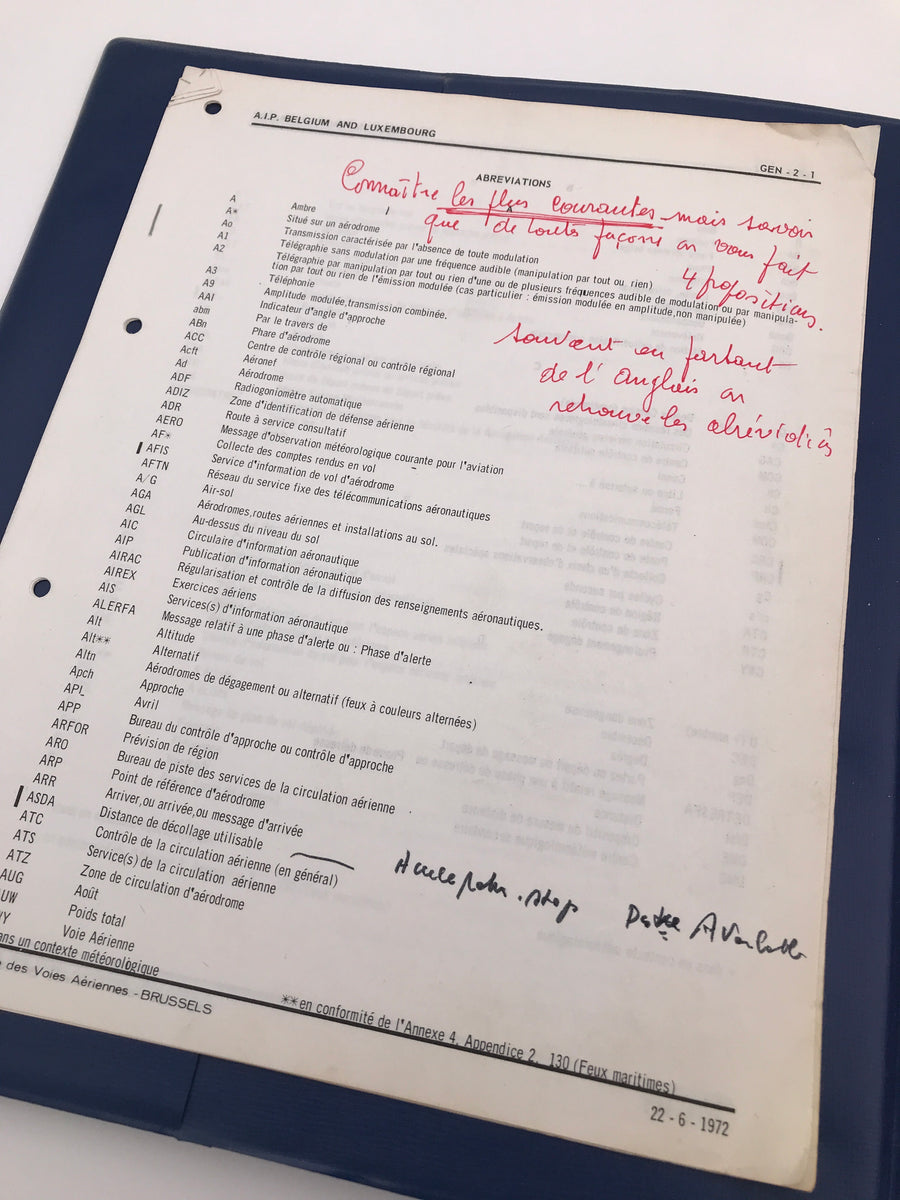 A.I.P. BELGIUM AND LUXEMBOURG
GEN - 2 - 1
ABREVIATIONS
Connaître les plus courantes mais savoir
que de toute façon on vous fait
4 propositions.
souvent en partant
de l'anglais on
retrouve les abréviations
A
A* Ambre
Ao Situé sur un aérodrome
A1 Transmission caractérisée par l'absence de toute modulation
A2 Télégraphie sans modulation par une fréquence audible (manipulation par tout ou rien)
Télégraphie par manipulation par tout ou rien d'une ou de plusieurs fréquences audibles de modulation ou par manipula-
tion par tout ou rien de l'émission modulée (cas particulier : émission modulée en amplitude, non manipulée)
A3 Téléphonie
A9 Amplitude modulée, transmission combinée.
AAI Indicateur d'angle d'approche
abm Par le travers de
ABn Phare d'aérodrome
ACC Centre de contrôle régional ou contrôle régional
Acft Aéronef
Ad Aérodrome
ADF Radiogoniomètre automatique
ADIZ Zone d'identification de défense aérienne
ADR Route à service consultatif
AERO Message d'observation météorologique courante pour l'aviation
AF* Collecte des comptes rendus en vol
AFIS Service d'information de vol d'aérodrome
AFTN Réseau du service fixe des télécommunications aéronautiques
A/G Air-sol
AGA Aérodromes, routes aériennes et installations au sol.
AGL Au-dessus du niveau du sol
AIC Circulaire d'information aéronautique
AIP Publication d'information aéronautique
AIRAC Régularisation et contrôle de la diffusion des renseignements aéronautiques.
AIREX Exercices aériens
AIS Services(s) d'information aéronautique
ALERFA Message relatif à une phase d'alerte ou : Phase d'alerte
Alt Altitude
Alt** Alternatif
Altn Aérodromes de dégagement ou alternatif (feux à couleurs alternées)
Apch Approche
APL Avril
APP Bureau du contrôle d'approche ou contrôle d'approche
ARFOR Prévision de région
ARO Bureau de piste des services de la circulation aérienne
ARP Point de référence d'aérodrome
ARR Arriver, ou arrivée, ou message d'arrivée
ASDA Distance de décollage utilisable
ATC Contrôle de la circulation aérienne (en général)
ATS Service(s) de la circulation aérienne
ATZ Zone de circulation d'aérodrome
AUG Août
UW Poids total
WY Voie Aérienne
stop
ans un contexte météorologique
des Voies Aériennes - BRUSSELS
**en conformité de l'Annexe 4, Appendice 2, 130 (Feux maritimes)
22 - 6 - 1972